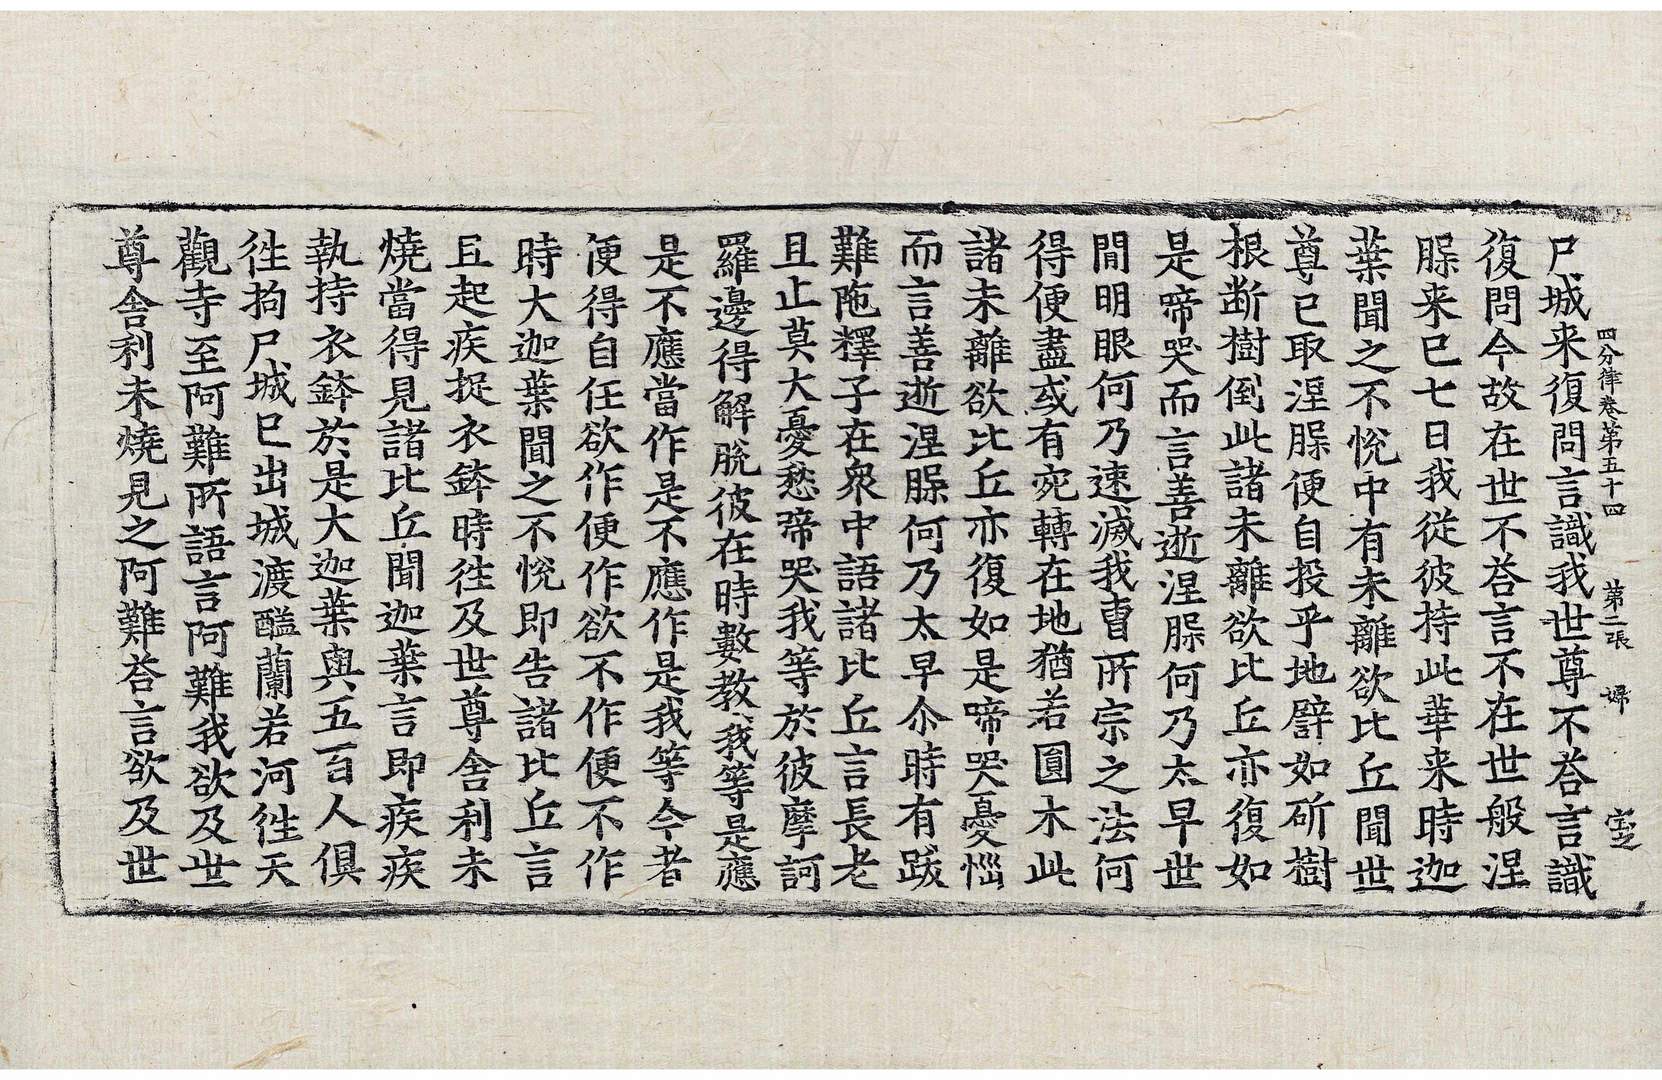 四分律卷第五十四 第二張 婦
尸城来復問言識我世尊不荅言識
復問今故在世不荅言不在世般涅
槃来已七日我從彼持此華来時迦
葉聞之不恱中有未離欲比丘聞世
尊已取涅槃便自投乎地譬如斫樹
根断樹倒此諸未離欲比丘亦復如
是啼哭而言善逝涅槃何乃太早世
間明眼何乃速滅我曹所宗之法何
得便盡或有宛轉在地猶若圓木此
諸未離欲比丘亦復如是啼哭憂惱
而言善逝涅槃何乃太早尒時有跋
難陁釋子在衆中語諸比丘言長老
且止莫大憂愁啼哭我等於彼摩訶
羅邊得解脫彼在時數教我等是應
是不應當作是不應作是我等今者
便得自任欲作便作欲不作便不作
時大迦葉聞之不恱即告諸比丘言
且起疾捉衣鉢時往及世尊舍利未
燒當得見諸比丘聞迦葉言即疾疾
執持衣鉢於是大迦葉與五百人俱
往拘尸城已出城渡醯蘭若河往天
觀寺至阿難所語言阿難我欲及世
尊舍利未燒見之阿難荅言欲及世